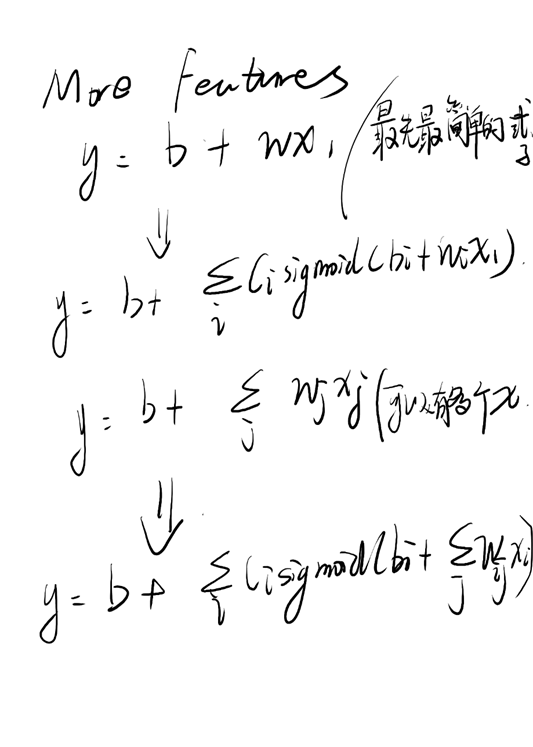 More Features
y = b + wx₁ (最先最简单的式子
⇓
y = b + ∑ᵢ cᵢ sigmoid(bᵢ + wᵢx₁).
y = b + ∑ⱼ wⱼxⱼ (可以有多个x.
⇓
y = b + ∑ᵢ cᵢ sigmoid(bᵢ + ∑ⱼ wᵢⱼxⱼ)